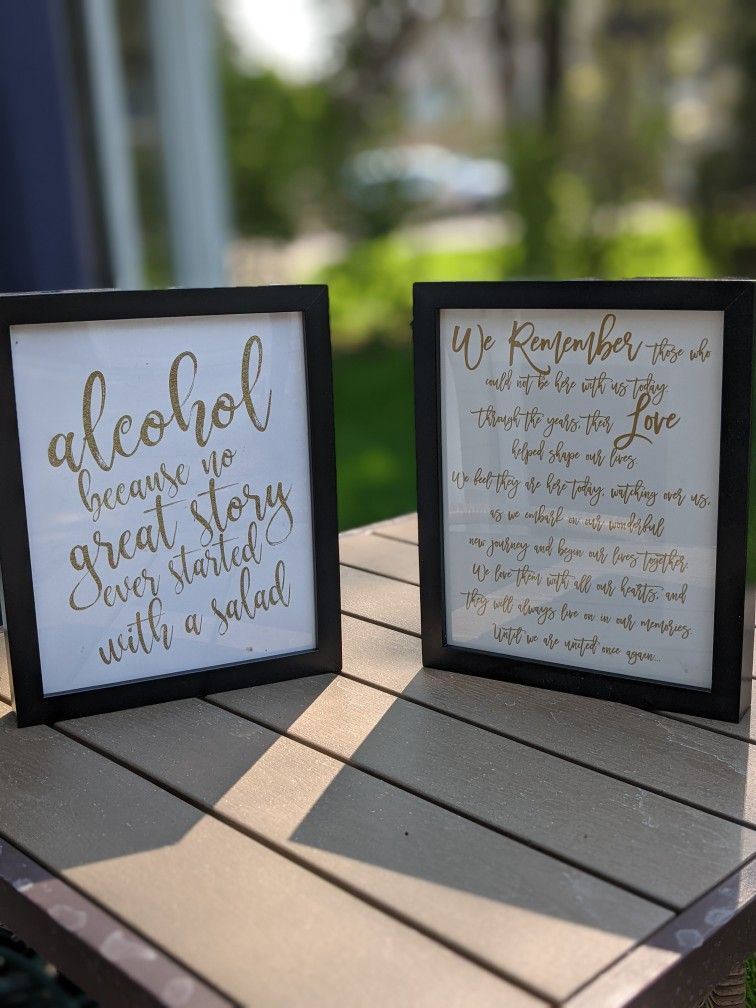 alcohol
because no
great story
ever started
with a salad
We Remember those who
could not be here with us today.
through the years, their Love
helped shape our lives.
We feel they are here today, watching over us,
as we embark on our wonderful
new journey and begin our lives together.
We love them with all our hearts, and
they will always live on in our memories.
Until we are united once again...